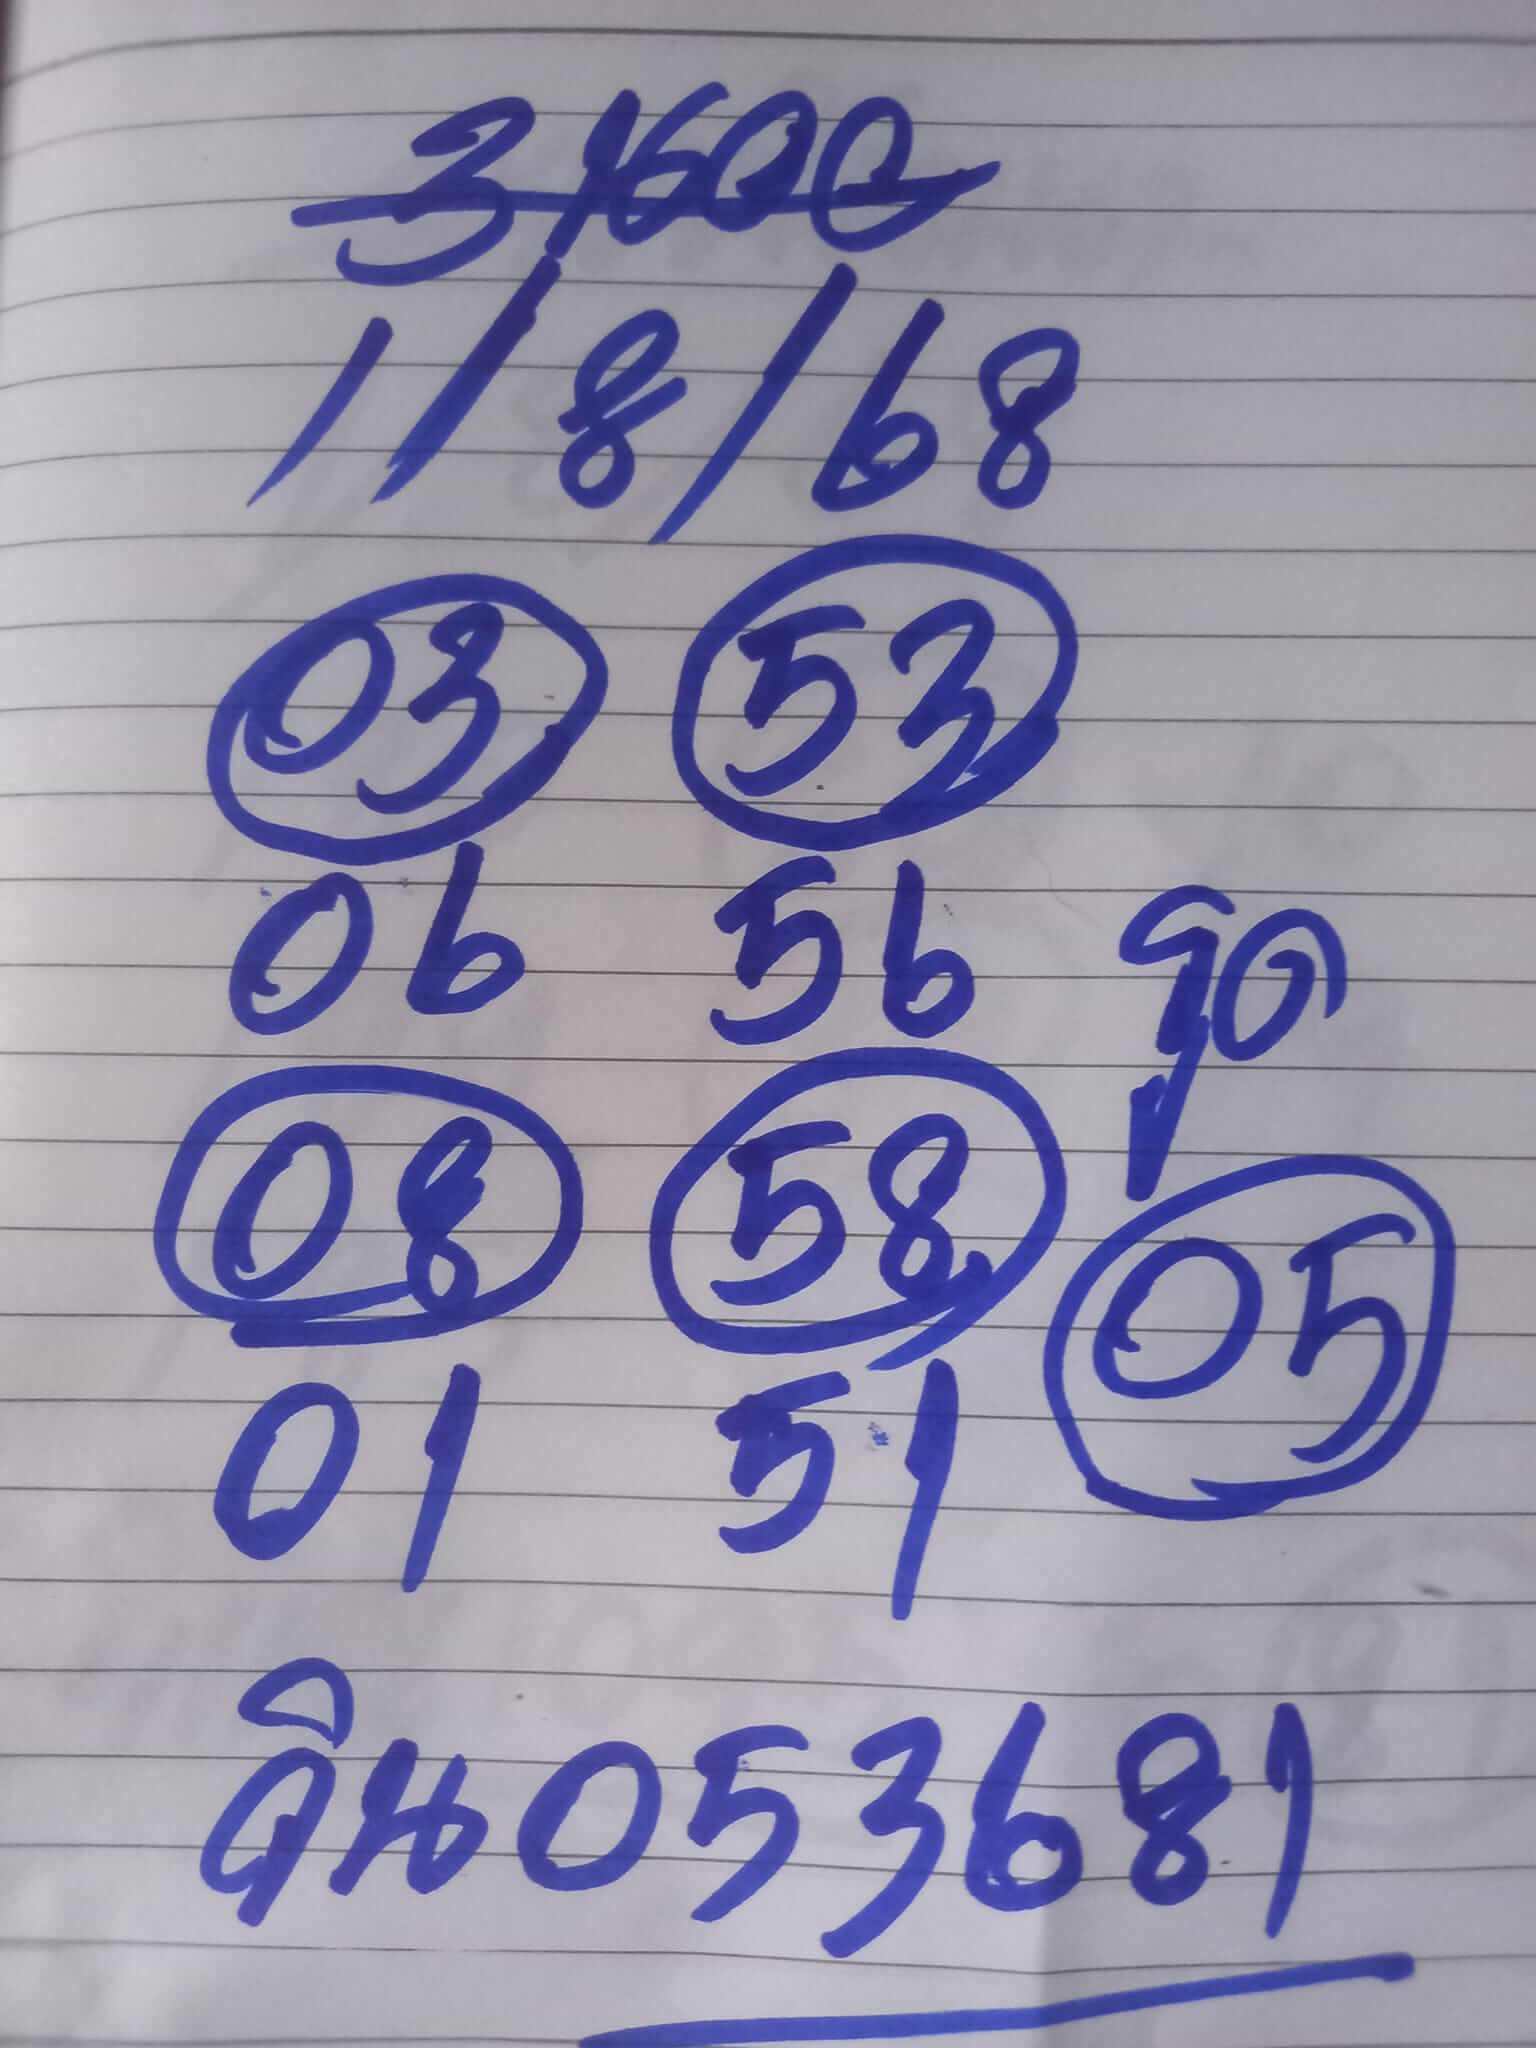 1/8/68
03 53
06 56 รูด
08 58 05
01 51
วิน 053681